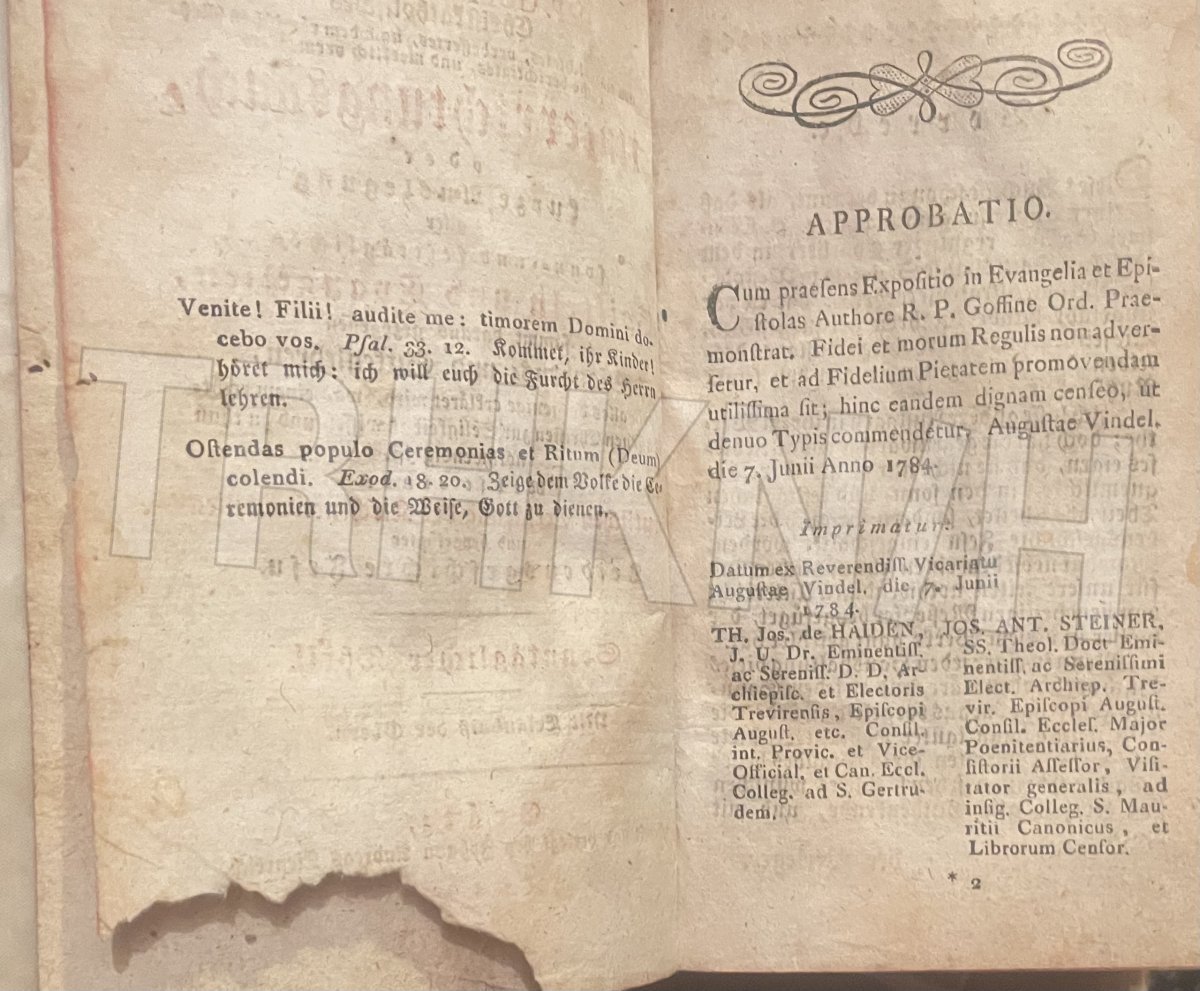 Venite! Filii! audite me: timorem Domini do-
cebo vos. Pſal. 33. 12. Kommet, ihr Kinder!
höret mich: ich will euch die Furcht des Herrn
lehren.
Oſtendas populo Ceremonias et Ritum (Deum)
colendi. Exod. 18. 20. Zeige dem Volke die Ce-
remonien und die Weiſe, Gott zu dienen.
APPROBATIO.
Cum praeſens Expoſitio in Evangelia et Epi-
ſtolas Authore R. P. Goffine Ord. Prae-
monſtrat. Fidei et morum Regulis non adver-
ſetur, et ad Fidelium Pietatem promovendam
utiliſſima ſit; hinc eandem dignam cenſeo, ut
denuo Typis commendetur, Auguſtae Vindel.
die 7. Junii Anno 1784.
Imprimatur.
Datum ex Reverendiſſ. Vicariatu
Auguſtae Vindel. die 7. Junii
1784.
TH. Joſ. de HAIDEN,
J. U. Dr. Eminentiſſ.
ac Sereniſſ. D. D. Ar-
chiepiſc. et Electoris
Trevirenſis, Epiſcopi
Auguſt. etc. Conſil.
int. Provic. et Vice-
Official, et Can. Eccl.
Colleg. ad S. Gertru-
dem.
JOS. ANT. STEINER,
SS. Theol. Doct Emi-
nentiſſ. ac Sereniſſimi
Elect. Archiep. Tre-
vir. Epiſcopi Auguſt.
Conſil. Eccleſ. Major
Poenitentiarius, Con-
ſiſtorii Aſſeſſor, Viſi-
tator generalis, ad
inſig. Colleg. S. Mau-
ritii Canonicus, et
Librorum Cenſor.
* 2